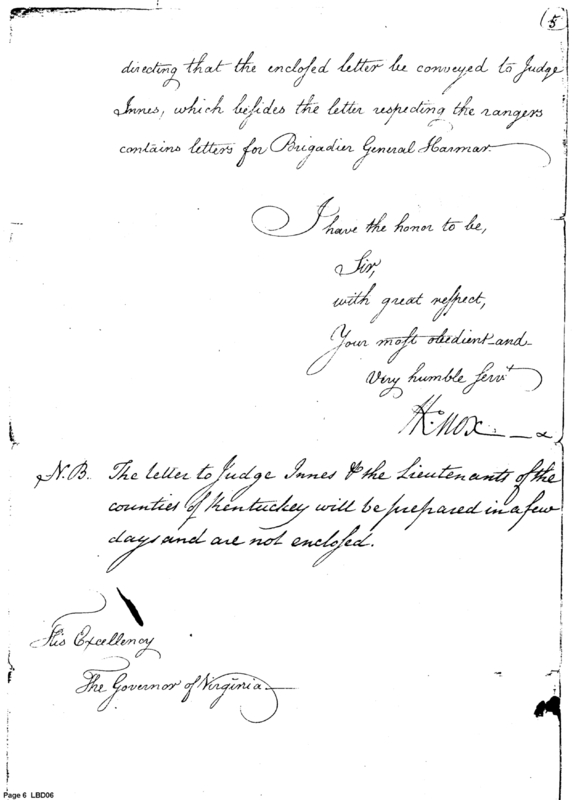 (5
directing that the enclosed letter be conveyed to Judge
Innes, which beſides the letter respecting the rangers
contains letters for Brigadier General Harmar.
I have the honor to be,
Sir,
with great reſpect,
Your moſt obedient and
Very humble Servt
HKnox
N.B. The letter to Judge Innes & the Lieutenants of the
counties of Kentuckey will be prepared in a few
days and are not encloſed.
His Excellency
The Governor of Virginia
Page 6 LBD06